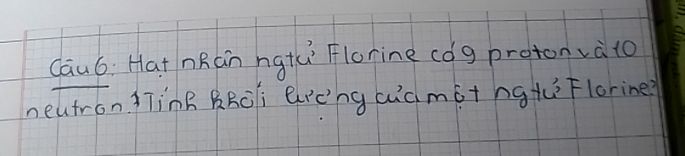 Câu 6: Hạt nhân ngtử Florine có 9 proton và 10
neutron. Tính khối lượng của một ngtử Florine?